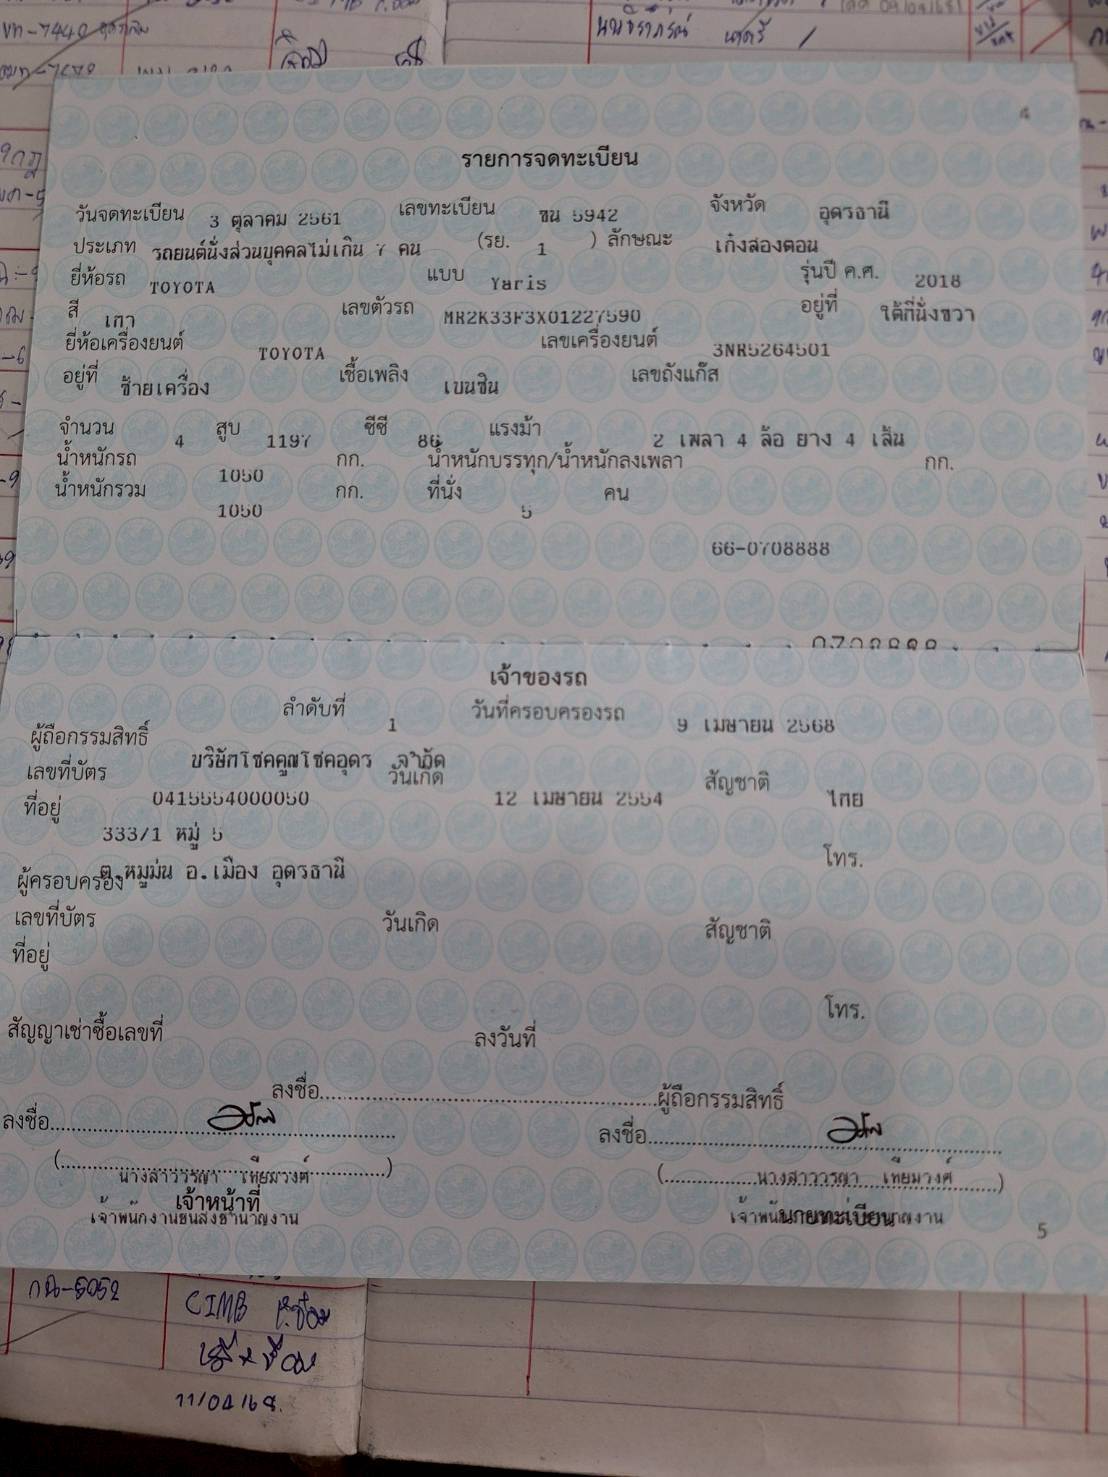 รายการจดทะเบียน
วันจดทะเบียน 3 ตุลาคม 2561 เลขทะเบียน ขน 5942 จังหวัด อุดรธานี
ประเภท รถยนต์นั่งส่วนบุคคลไม่เกิน 7 คน (รย. 1 ) ลักษณะ เก๋งสองตอน
ยี่ห้อรถ TOYOTA แบบ Yaris รุ่นปี ค.ศ. 2018
สี เทา เลขตัวรถ MR2K33F3X01227590 อยู่ที่ ใต้ที่นั่งขวา
ยี่ห้อเครื่องยนต์ TOYOTA เลขเครื่องยนต์ 3NR5264501
อยู่ที่ ซ้ายเครื่อง เชื้อเพลิง เบนซิน เลขถังแก๊ส
จำนวน 4 สูบ 1197 ซีซี 86 แรงม้า 2 เพลา 4 ล้อ ยาง 4 เส้น
น้ำหนักรถ 1050 กก. น้ำหนักบรรทุก/น้ำหนักลงเพลา กก.
น้ำหนักรวม 1050 กก. ที่นั่ง 5 คน
66-0708888
เจ้าของรถ
ลำดับที่ 1 วันที่ครอบครองรถ 9 เมษายน 2568
ผู้ถือกรรมสิทธิ์ บริษัทโชคคูณโชคอุดร จำกัด
เลขที่บัตร 0415554000050 วันเกิด 12 เมษายน 2554 สัญชาติ ไทย
ที่อยู่ 333/1 หมู่ 5
ต.หมูม่น อ.เมือง อุดรธานี โทร.
ผู้ครอบครอง
เลขที่บัตร วันเกิด สัญชาติ
ที่อยู่
โทร.
สัญญาเช่าซื้อเลขที่ ลงวันที่
ลงชื่อ ผู้ถือกรรมสิทธิ์
ลงชื่อ ลงชื่อ
(นางสาววรญา เทียมวงศ์) (นางสาววรญา เทียมวงศ์)
เจ้าหน้าที่ นายทะเบียน
เจ้าพนักงานขนส่งชำนาญงาน เจ้าพนักงานขนส่งชำนาญงาน
5
CIMB
11/04/68.